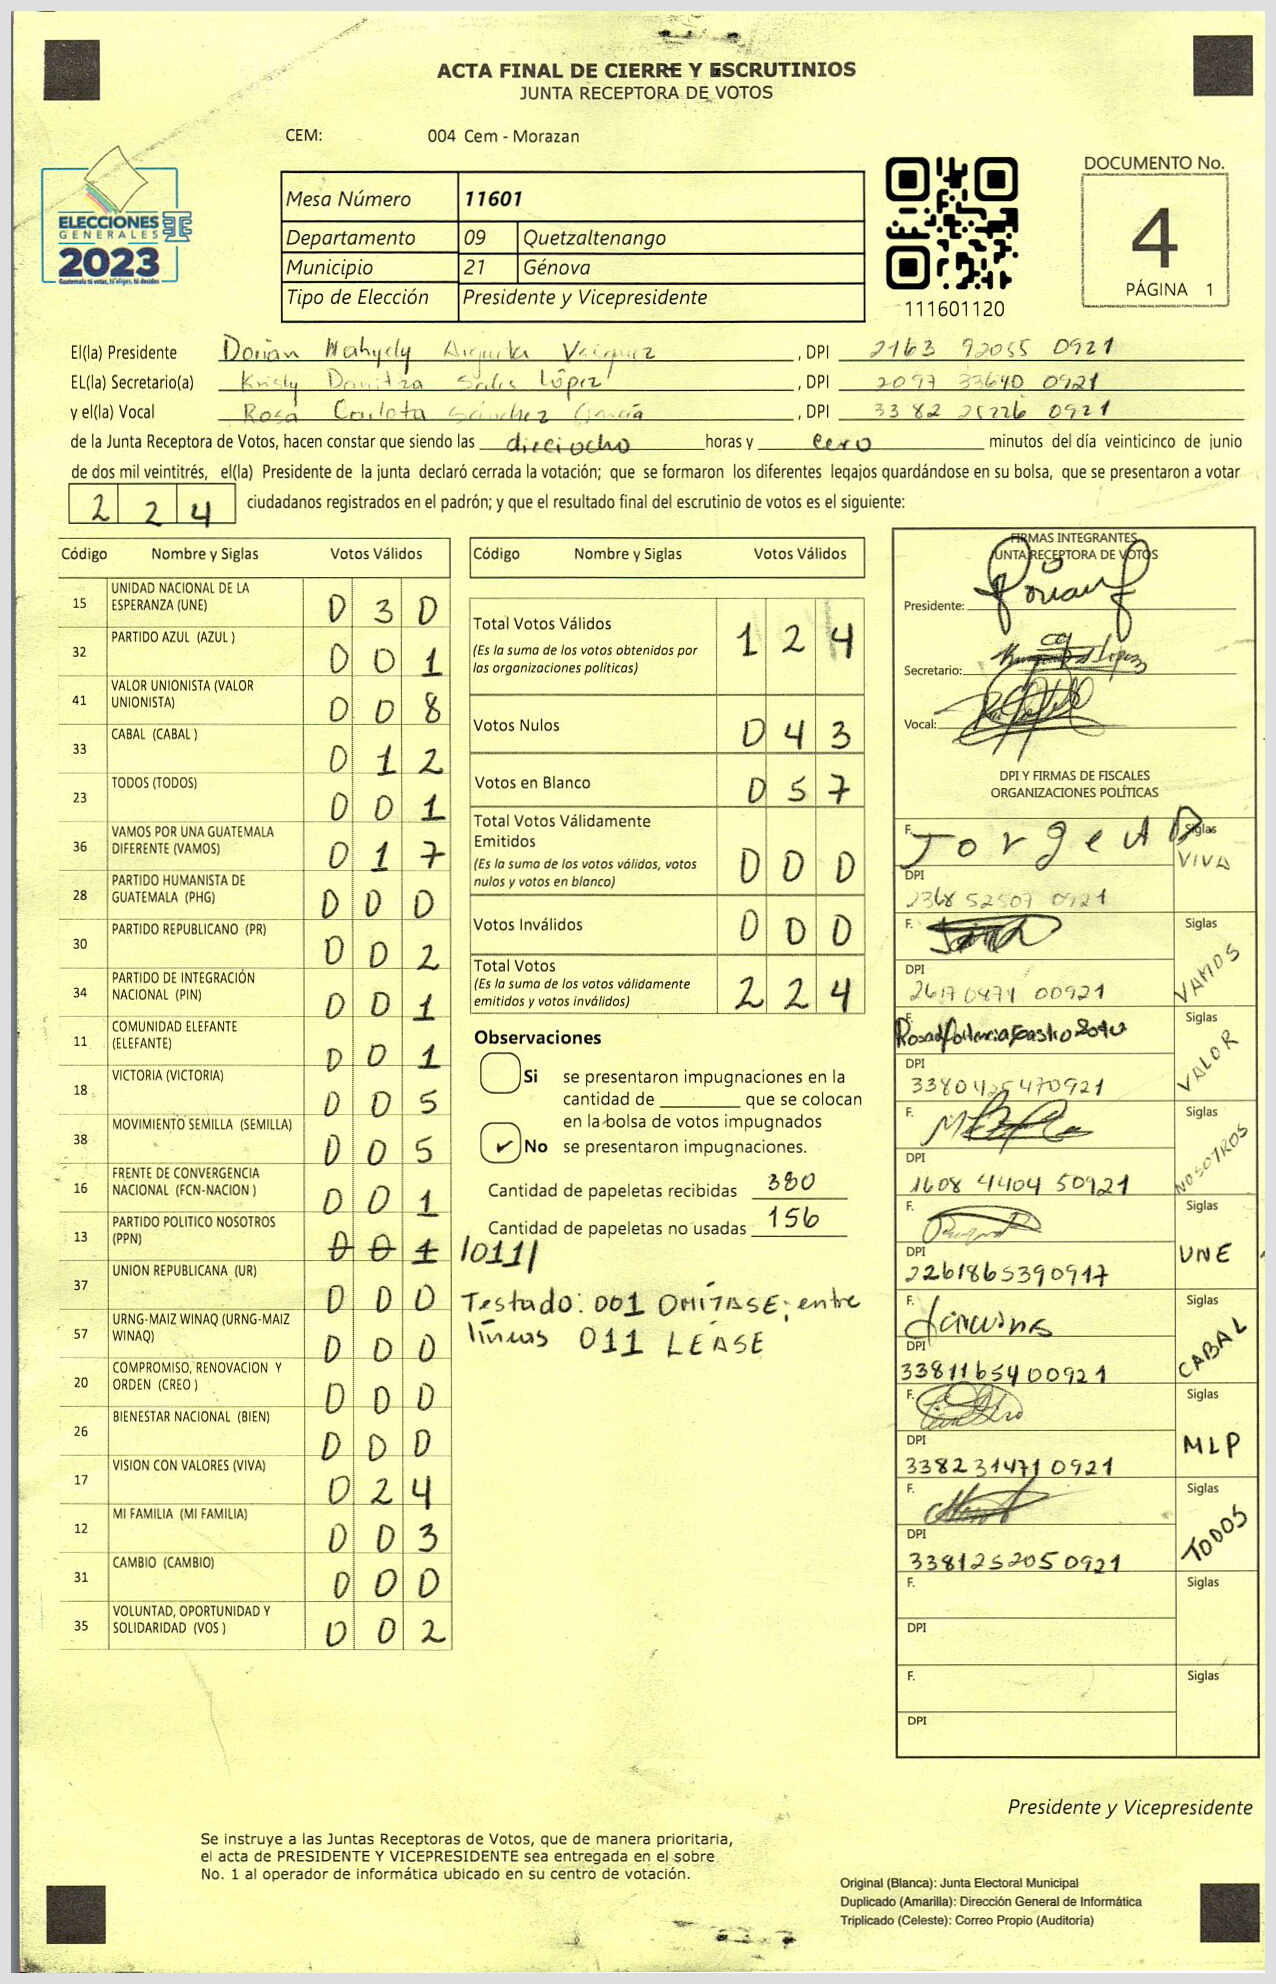 ACTA FINAL DE CIERRE Y ESCRUTINIOS
JUNTA RECEPTORA DE VOTOS
CEM: 004 Cem - Morazan
ELECCIONES
GENERALES
2023
Guatemala tú votas, tú eliges, tú decides
Mesa Número 11601
Departamento 09 Quetzaltenango
Municipio 21 Génova
Tipo de Elección Presidente y Vicepresidente
111601120
DOCUMENTO No.
4
PÁGINA 1
El(la) Presidente Dorian Vásquez , DPI 2163 92055 0921
EL(la) Secretario(a) Kristy Danitza Sales López , DPI 2097 33640 0921
y el(la) Vocal Rosa Carlota Sánchez García , DPI 3382 0921
de la Junta Receptora de Votos, hacen constar que siendo las dieciocho horas y cero minutos del día veinticinco de junio
de dos mil veintitrés, el(la) Presidente de la junta declaró cerrada la votación; que se formaron los diferentes legajos guardándose en su bolsa, que se presentaron a votar
224 ciudadanos registrados en el padrón; y que el resultado final del escrutinio de votos es el siguiente:
Código Nombre y Siglas Votos Válidos
15 UNIDAD NACIONAL DE LA ESPERANZA (UNE) 030
32 PARTIDO AZUL (AZUL ) 001
41 VALOR UNIONISTA (VALOR UNIONISTA) 008
33 CABAL (CABAL ) 012
23 TODOS (TODOS) 001
36 VAMOS POR UNA GUATEMALA DIFERENTE (VAMOS) 017
28 PARTIDO HUMANISTA DE GUATEMALA (PHG) 000
30 PARTIDO REPUBLICANO (PR) 002
34 PARTIDO DE INTEGRACIÓN NACIONAL (PIN) 001
11 COMUNIDAD ELEFANTE (ELEFANTE) 001
18 VICTORIA (VICTORIA) 005
38 MOVIMIENTO SEMILLA (SEMILLA) 005
16 FRENTE DE CONVERGENCIA NACIONAL (FCN-NACION ) 001
13 PARTIDO POLITICO NOSOTROS (PPN) 001 /011/
37 UNION REPUBLICANA (UR) 000
57 URNG-MAIZ WINAQ (URNG-MAIZ WINAQ) 000
20 COMPROMISO, RENOVACION Y ORDEN (CREO ) 000
26 BIENESTAR NACIONAL (BIEN) 000
17 VISION CON VALORES (VIVA) 024
12 MI FAMILIA (MI FAMILIA) 003
31 CAMBIO (CAMBIO) 000
35 VOLUNTAD, OPORTUNIDAD Y SOLIDARIDAD (VOS ) 002
Código Nombre y Siglas Votos Válidos
Total Votos Válidos 124
(Es la suma de los votos obtenidos por
las organizaciones políticas)
Votos Nulos 043
Votos en Blanco 057
Total Votos Válidamente
Emitidos 000
(Es la suma de los votos válidos, votos
nulos y votos en blanco)
Votos Inválidos 000
Total Votos 224
(Es la suma de los votos válidamente
emitidos y votos inválidos)
Observaciones
Si se presentaron impugnaciones en la
cantidad de ________ que se colocan
en la bolsa de votos impugnados
✓ No se presentaron impugnaciones.
Cantidad de papeletas recibidas 380
Cantidad de papeletas no usadas 156
Testado: 001 OMÍTASE; entre
líneas 011 LEASE
FIRMAS INTEGRANTES
JUNTA RECEPTORA DE VOTOS
Presidente:
Secretario:
Vocal:
DPI Y FIRMAS DE FISCALES
ORGANIZACIONES POLÍTICAS
F. Siglas VIVA
DPI 2368 52507 0921
F. Siglas VAMOS
DPI 00921
F. Siglas VALOR
DPI 3380425470921
F. Siglas NOSOTROS
DPI 1608 4404 50921
F. Siglas UNE
DPI 2261865390917
F. Siglas CABAL
DPI 3381165400921
F. Siglas MLP
DPI 3382314710921
F. Siglas TODOS
DPI 3381252050921
F. Siglas
DPI
F. Siglas
DPI
Presidente y Vicepresidente
Se instruye a las Juntas Receptoras de Votos, que de manera prioritaria,
el acta de PRESIDENTE Y VICEPRESIDENTE sea entregada en el sobre
No. 1 al operador de informática ubicado en su centro de votación.
Original (Blanca): Junta Electoral Municipal
Duplicado (Amarilla): Dirección General de Informática
Triplicado (Celeste): Correo Propio (Auditoría)